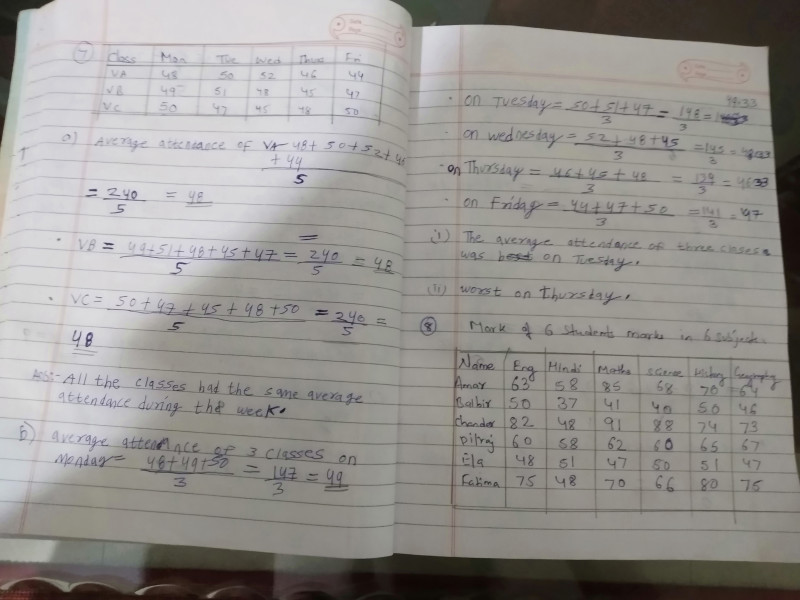 7 Class Mon Tue Wed Thus Fri
VA 48 50 52 46 44
VB 49 51 48 45 47
VC 50 47 45 48 50
a) Average attendance of VA 48 + 50 + 52 + 46
+ 44
5
= 240/5 = 48
• VB = 49+51+48+45+47/5 = 240/5 = 48
• VC = 50+47+45+48+50/5 = 240/5 =
48
Ans:- All the classes had the same average
attendance during the week.
b) average attendance of 3 classes on
Monday = 48+49+50/3 = 147/3 = 49
49.33
• on Tuesday = 50+51+47/3 = 148/3 =
• on wednesday = 52+48+45/3 = 145/3 = 48.33
• on Thursday = 46+45+48/3 = 139/3 = 46.33
• on Friday = 44+47+50/3 = 141/3 = 47
(i) The average attendance of three classes
was best on Tuesday.
(ii) worst on Thursday.
8 Mark of 6 students marks in 6 subject.
Name Eng Hindi Maths science History Geography
Amar 63 58 85 68 70 64
Balbir 50 37 41 40 50 46
chander 82 48 91 88 74 73
Dilraj 60 58 62 60 65 67
Ela 48 51 47 50 51 47
Fatima 75 48 70 66 80 75